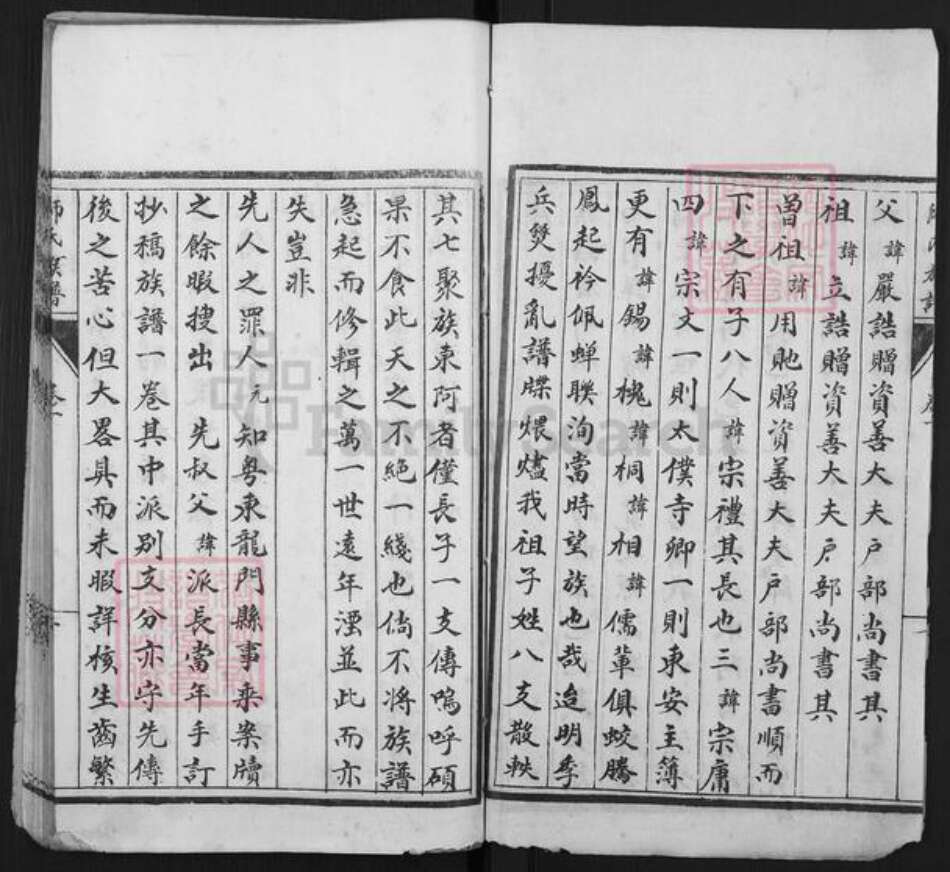 父諱嚴誥贈資善大夫戶部尚書其
祖諱立誥贈資善大夫戶部尚書其
曾祖諱用貤贈資善大夫戶部尚書順而
下之有子八人諱宗禮其長也三諱宗庸
四諱宗文一則太僕寺卿一則東安主簿
更有諱錫諱槐諱桐諱相諱儒輩俱蛟騰
鳳起衿佩蟬聯洵當時望族也哉迨明季
兵燹擾亂譜牒煨燼我祖子姓八支散軼
其七聚族東阿者僅長子一支傳嗚呼碩
果不食此天之不絕一綫也倘不將族譜
急起而修輯之萬一世遠年湮並此而亦
失豈非
先人之罪人元知粵東龍門縣事乘案牘
之餘暇搜出 先叔父諱派長當年手訂
抄稿族譜一卷其中派別支分亦守先傳
後之苦心但大畧具而未暇詳核生齒繁
師氏族譜
卷一
FamilySearch